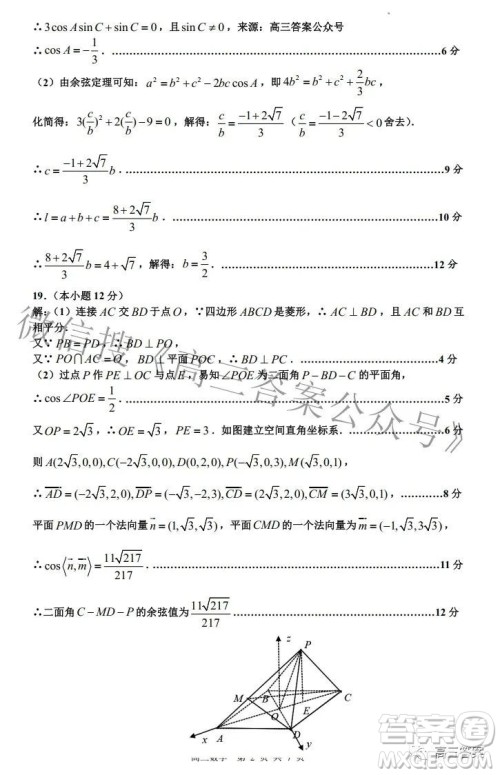 ∴3cos A sin C + sin C = 0，且 sin C ≠ 0，来源：高三答案公众号
∴cos A = -1/3．……………………6 分
（2）由余弦定理可知：a² = b² + c² - 2bc cos A，即 4b² = b² + c² + 2/3 bc，
化简得：3(c/b)² + 2(c/b) - 9 = 0，解得：c/b = (-1+2√7)/3（c/b = (-1-2√7)/3 < 0 舍去）．
∴c = (-1+2√7)/3 b．……………………9 分
∴l = a + b + c = (8+2√7)/3 b．……………………10 分
∴(8+2√7)/3 b = 4+√7，解得：b = 3/2．……………………12 分
19．（本小题 12 分）
解：（1）连接 AC 交 BD 于点 O，∵四边形 ABCD 是菱形，∴AC ⊥ BD，且 AC 与 BD 互
相平分．
又∵PB = PD，∴BD ⊥ PO，
又∵PO∩AC = O，BD⊥平面 POC，∴BD ⊥ PC．……………………4 分
（2）过点 P 作 PE ⊥ OC 与点 E，易知∠POE 为二面角 P-BD-C 的平面角，
∴cos∠POE = 1/2．……………………5 分
又 OP = 2√3，∴OE = √3，PE = 3．如图建立空间直角坐标系．……………6 分
则 A(2√3,0,0), C(-2√3,0,0), D(0,2,0), P(-√3,0,3), M(√3,0,1)，
∴AD = (-2√3,2,0), DP = (-√3,-2,3), CD = (2√3,2,0), CM = (3√3,0,1)，…………8 分
平面 PMD 的一个法向量 n = (1,√3,√3)，平面 CMD 的一个法向量为 m = (1,-√3,-3√3)，
∴cos⟨n,m⟩ = 11√217/217．……………………11 分
∴二面角 C-MD-P 的余弦值为 11√217/217．……………………12 分
z
P
M
B
C
O
E
A
D
x
y
高三数学 第 2 页 共 7 页
微信搜《高三答案公众号》
答案圈
高三答案